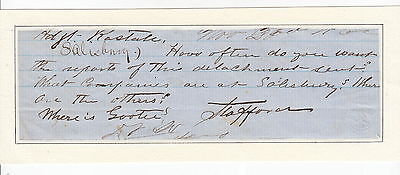 Adjt.
Salisbury.) How often do you want
the reports of this detachment sent?
What Companies are at Salisbury? Where
are the others?
Where is